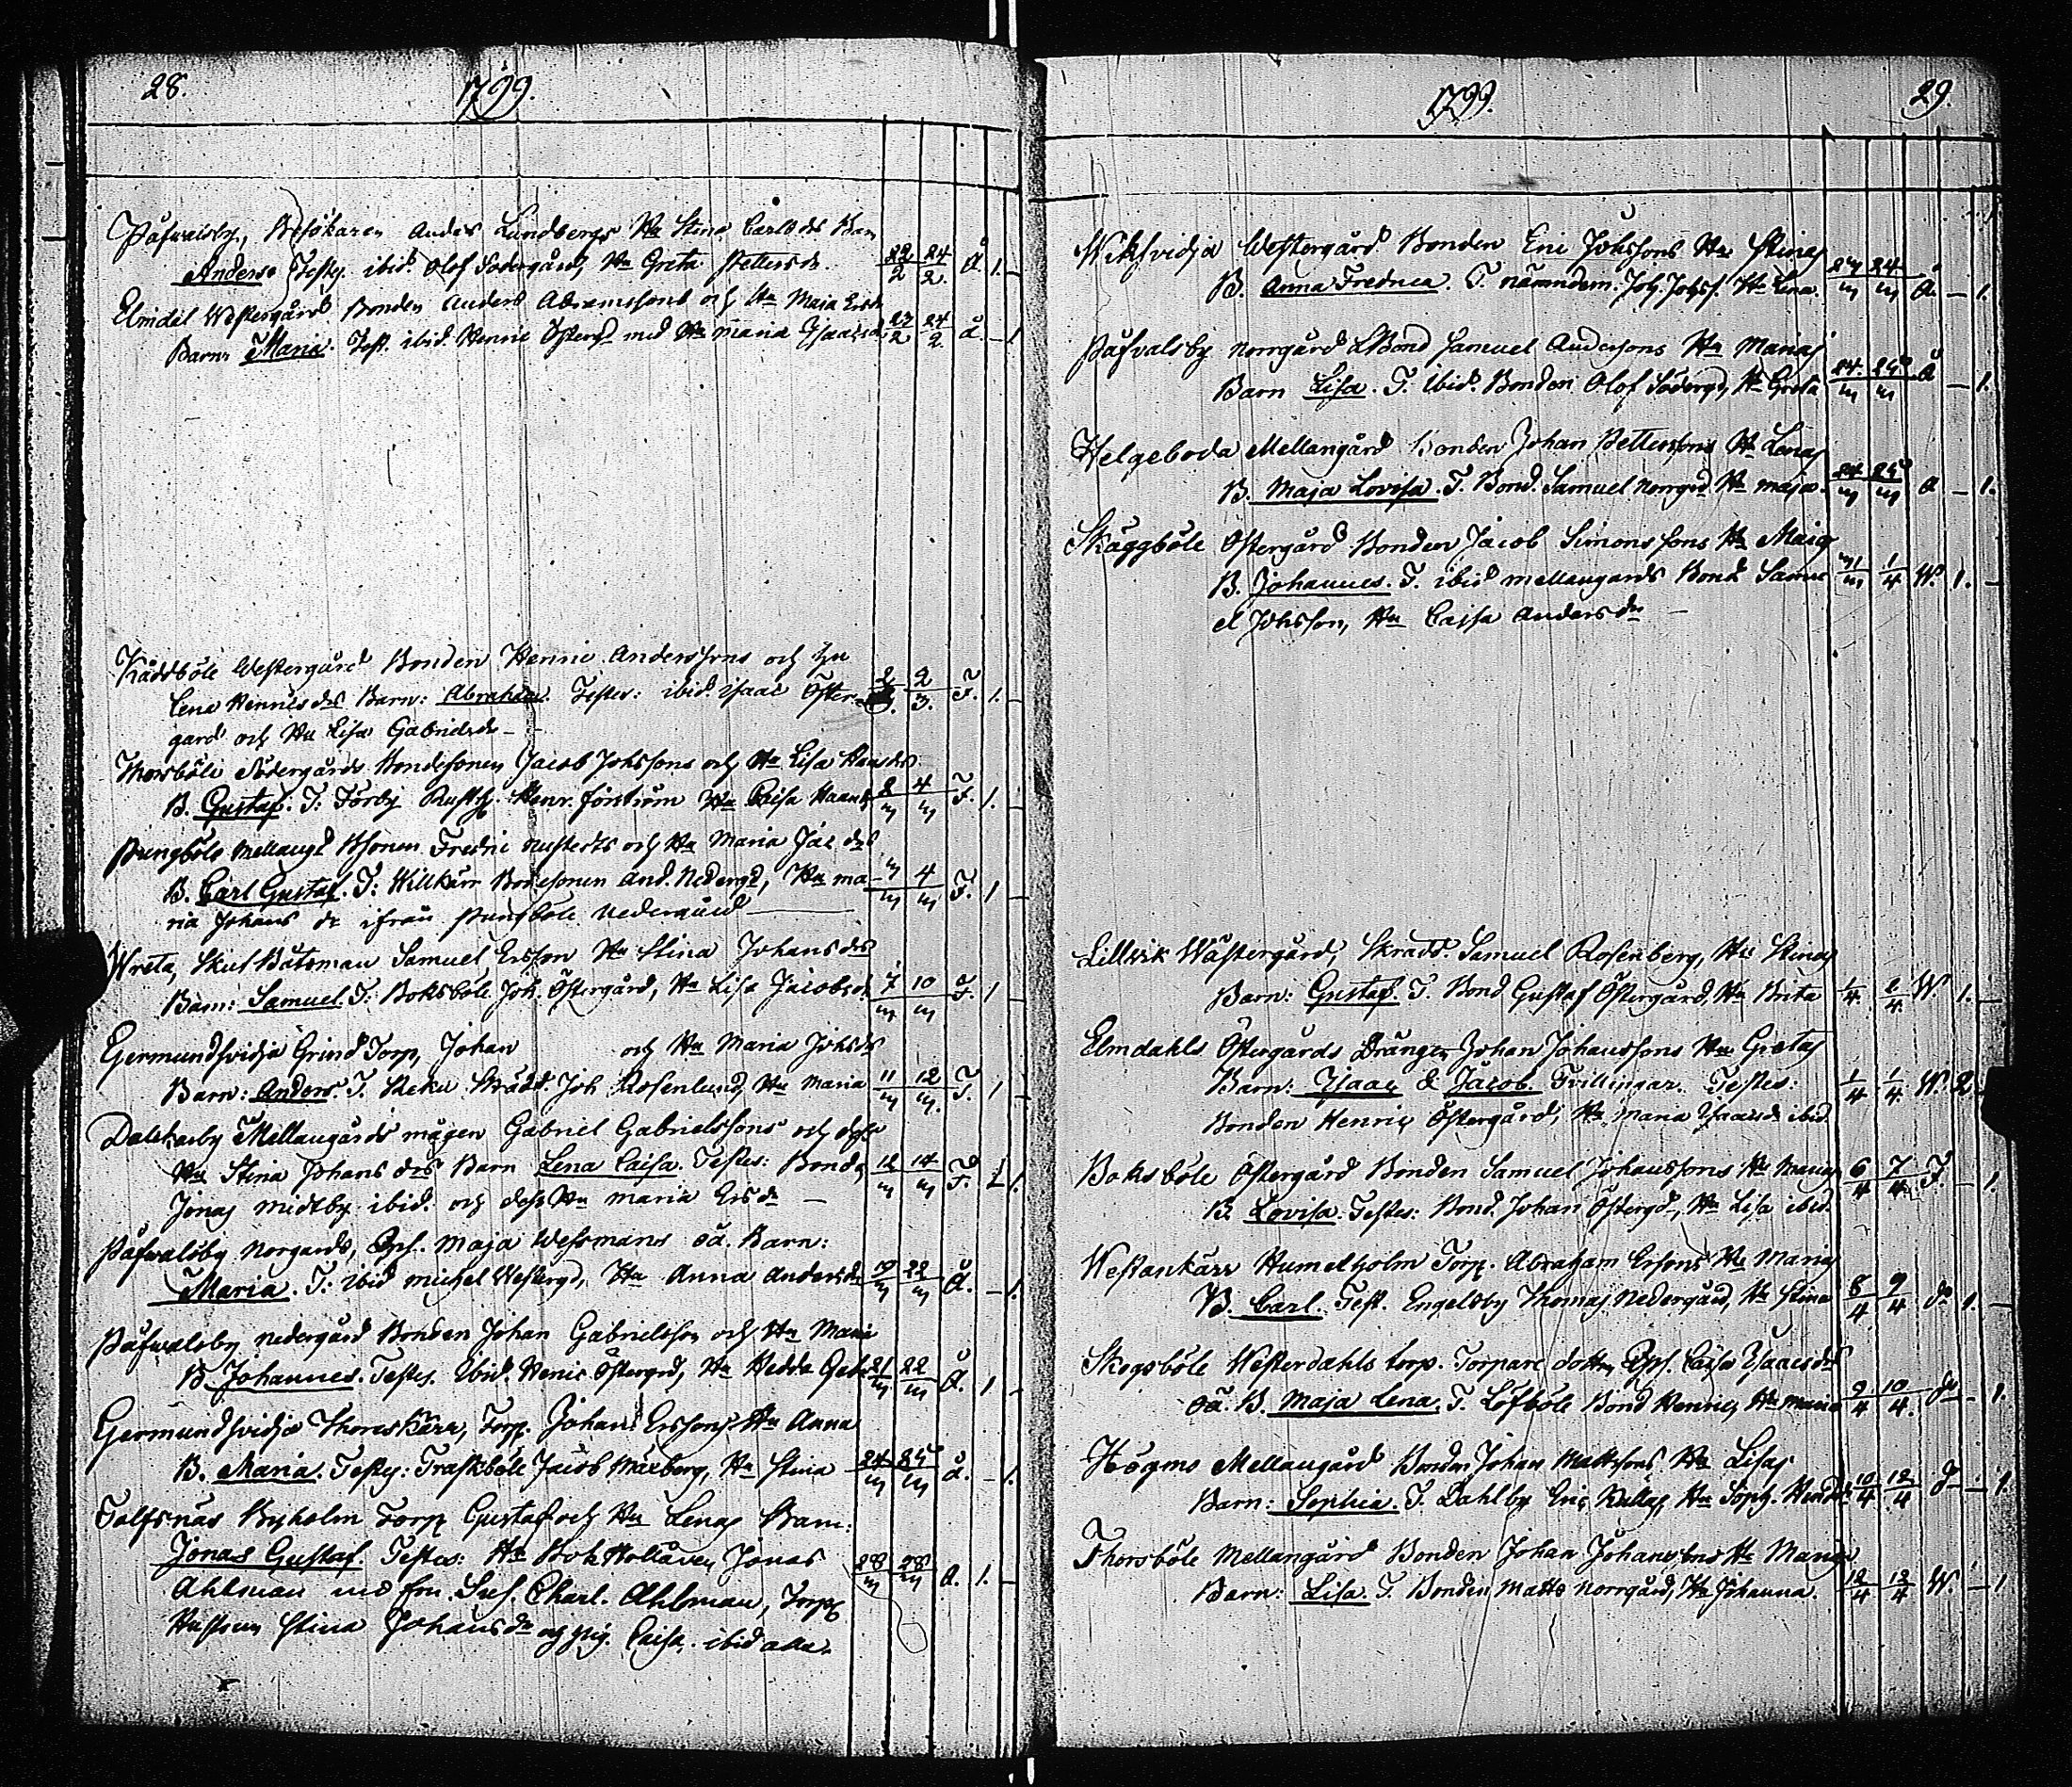 28. 1799.
Påfvalsby, Besökaren Anders Lundbergs Hu Stina Carlsdrs Barn
Anders Testes ibid. Olof Södergård, Hu Greta Pettersdr. 22/2 24/2. Å. 1. –
Elmdal Westergårds Bonden Anders Abramssons och Hu Maja Ersdr
Barn: Maria. Test. ibid. Henric Östergd med Hu Maria Isaacsdr 23/2 24/2. Å. – 1
Kåddböle Westergård Bonden Henric Anderssons och Hu
Lena Henricsdrs Barn: Abraham. Testes: ibid. Isaac Öster- 2/3. 2/3. F. 1. –
gård och Hu Lisa Gabrielsdr –
Thorsböle Södergårds Bondesonen Jacob Johssons och Hu Lisa Hansdrs
B. Gustaf. T: Förby Rusth. Henr. Förström Hu Caisa 2/m 4/m F. 1. –
Pungböle Mellangd Bsonen Fredric och Hu Maria Jac.drs
B. Carl Gustaf. T: Willkärr Bondesonen And. Nedergd, Hu Ma- 4/m F. 1 –
ria Johans dr ifrån Pungböle Nedergård
Wreta, Skut Båtsman Samuel Ersson Hu Stina Johansdrs
Barn: Samuel. T: Boksböle Joh. Östergård, Hu Lisa Jacobsdr 7/m 10/m F. 1 –
Germundsvidja Grind Torp, Johan och Hu Maria Johsdrs
Barn: Anders. T. Skrädd. Joh Rosenlund, Hu Maria 11/m 12/m. F. 1 –
Dalkarby Mellangårds mågen Gabriel Gabrielssons och dess
Hu Stina Johans drs Barn Lena Caisa. Testes: Bonden 12/m 14/m F. – 1.
Jonas Midtby ibid. och dess Hu Maria Ersdr –
Påfvalsby Norgårds, Maja Wessmans oä. Barn:
Maria. T: ibid Michel Westergd, Hu Anna Andersdr 19/m 22/m Å. – 1.
Påfvalsby Nedergård Bonden Johan Gabrielsson och Hu Maria
B. Johannes. Testes. Ibid. Henric Östergrd, Hu Hedda Gabr. 21/m 22/m Å. 1 –
Germundsvidja Thorskärr, Torp. Johan Erssons Hu Anna
B. Maria. Testes: Traskböle Jacob Malberg, Hu Stina 24/m 25/m Å. – 1.
Tolfsnäs Byholm Torp Gustaf och Hu Lenas Barn:
Jonas Gustaf. Testes: Hr Bokhollaren Jonas 28/m 28/m Å. 1. –
Ahlman med fru Sus. Charl. Ahlman, Torp.
Hustrun Stina Johansdr och pig. Caisa. ibid alla.
1799. 29.
Wiksvidja Westergård Bonden Eric Johssons Hu Stinas
B. Anna Fredrica. T. nämndem. Joh. Johss. Hu Lena. 24/m 24/m Å. – 1.
Påfvalsby Norrgård Bond Samuel Anderssons Hu Marias
Barn Lisa. T. ibid. Bonden Olof Södergd, Hu Greta 24/m 25/m Å – 1.
Helgeboda Mellangård Bonden Johan Petterssons Hu Lenas
B. Maja Lovisa. T. Bond. Samuel Norrgrd Hu Maja. 24/m 25/m Å – 1.
Skäggböle Östergård Bonden Jacob Simonssons Hu Maias
B. Johannes. T. ibid Mellangårds Bond Samu- 31/m 1/4 W. 1. –
el Johsson, Hu Cajsa Andersdr –
Lillvik Wästergård, Skrädd. Samuel Rosenberg, Hu Stinas
Barn: Gustaf. T. Bond Gustaf Östergård, Hu Brita 1/4. 2/4. W. 1. –
Elmdahls Östergårds Drängen Johan Johanssons Hu Gretas
Barn: Isaac & Jacob. Tvillingar. Testes: 1/4 1/4. W. 2. –
Bonden Henric Östergård, Hu Maria Isaacsdr ibid.
Boksböle Östergård Bonden Samuel Johanssons Hu Marias 6/4 7/4 F. – 1.
B. Lovisa. Testes: Bond. Johan Östergd, Hu Lisa ibid.
Westankärr Humelholm Torp. Abraham Ersons Hu Marias
B. Carl. Test. Engelsby Thomas Nedergård, Hu Stina 8/4 9/4 do 1. –
Skogsböle Westerdahls torp. Torpare dottr. Caisa Isaacsdrs
oä. B. Maja Lena. T. Löfböle Bond Henric, Hu Maria 9/4 10/4. do – 1.
Högmo Mellangård Bonden Johan Mattssons Hu Lisas
Barn: Sophia. T. Dahlby Eric Källas, Hu Soph. 10/4 12/4 – 1
Thorsböle Mellangård Bonden Johan Johanssons Hu Marias
Barn: Lisa. T. Bonden Matts Norrgård, Hu Johanna. 12/4 12/4 W. – 1